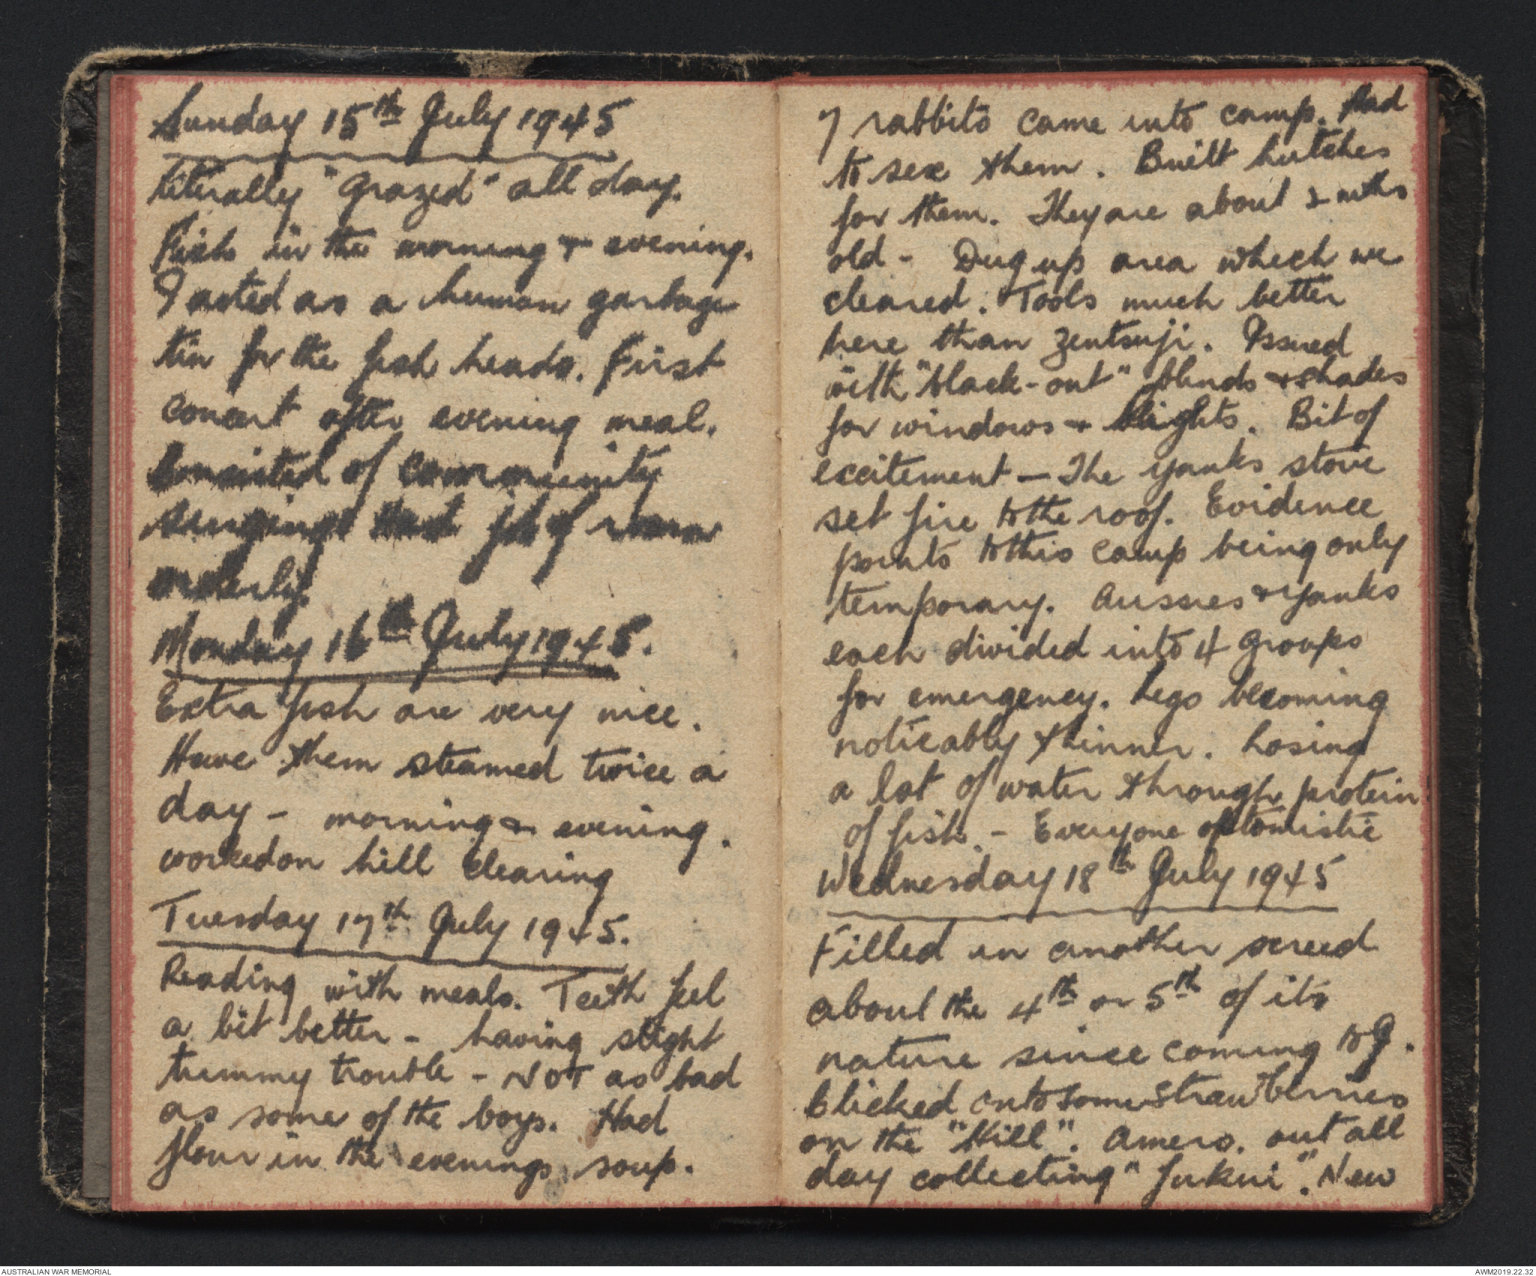 Sunday 15th July 1945
Literally "grazed" all day.
Fish in the morning & evening.
I acted as a human garbage
tin for the fish heads. First
concert after evening meal.
Consisted of community
singing. Had job of room
orderly.
Monday 16th July 1945.
Extra fish are very nice.
Have them steamed twice a
day - morning & evening.
worked on hill clearing
Tuesday 17th July 1945.
Reading with meals. Teeth feel
a bit better - having slight
tummy trouble - NOT as bad
as some of the boys. Had
flour in the evenings soup.
7 rabbits came into camp. Had
to sex them. Built hutches
for them. They are about 2 mths
old - Dug up area which we
cleared. Tools much better
here than Zentsuji. Issued
with "black-out" blinds & shades
for windows & lights. Bit of
excitement - The yanks stove
set fire to the roof. Evidence
points to this camp being only
temporary. Aussies & yanks
each divided into 4 groups
for emergency. Legs becoming
noticably thinner. Losing
a lot of water through protein
of fish. - Everyone optomistic
Wednesday 18th July 1945
Filled in another screed
about the 4th or 5th of its
nature since coming to J.
Clicked onto some strawberries
on the "Hill". Amers. out all
day collecting "fukui". New
AUSTRALIAN WAR MEMORIAL
AWM2019.22.32